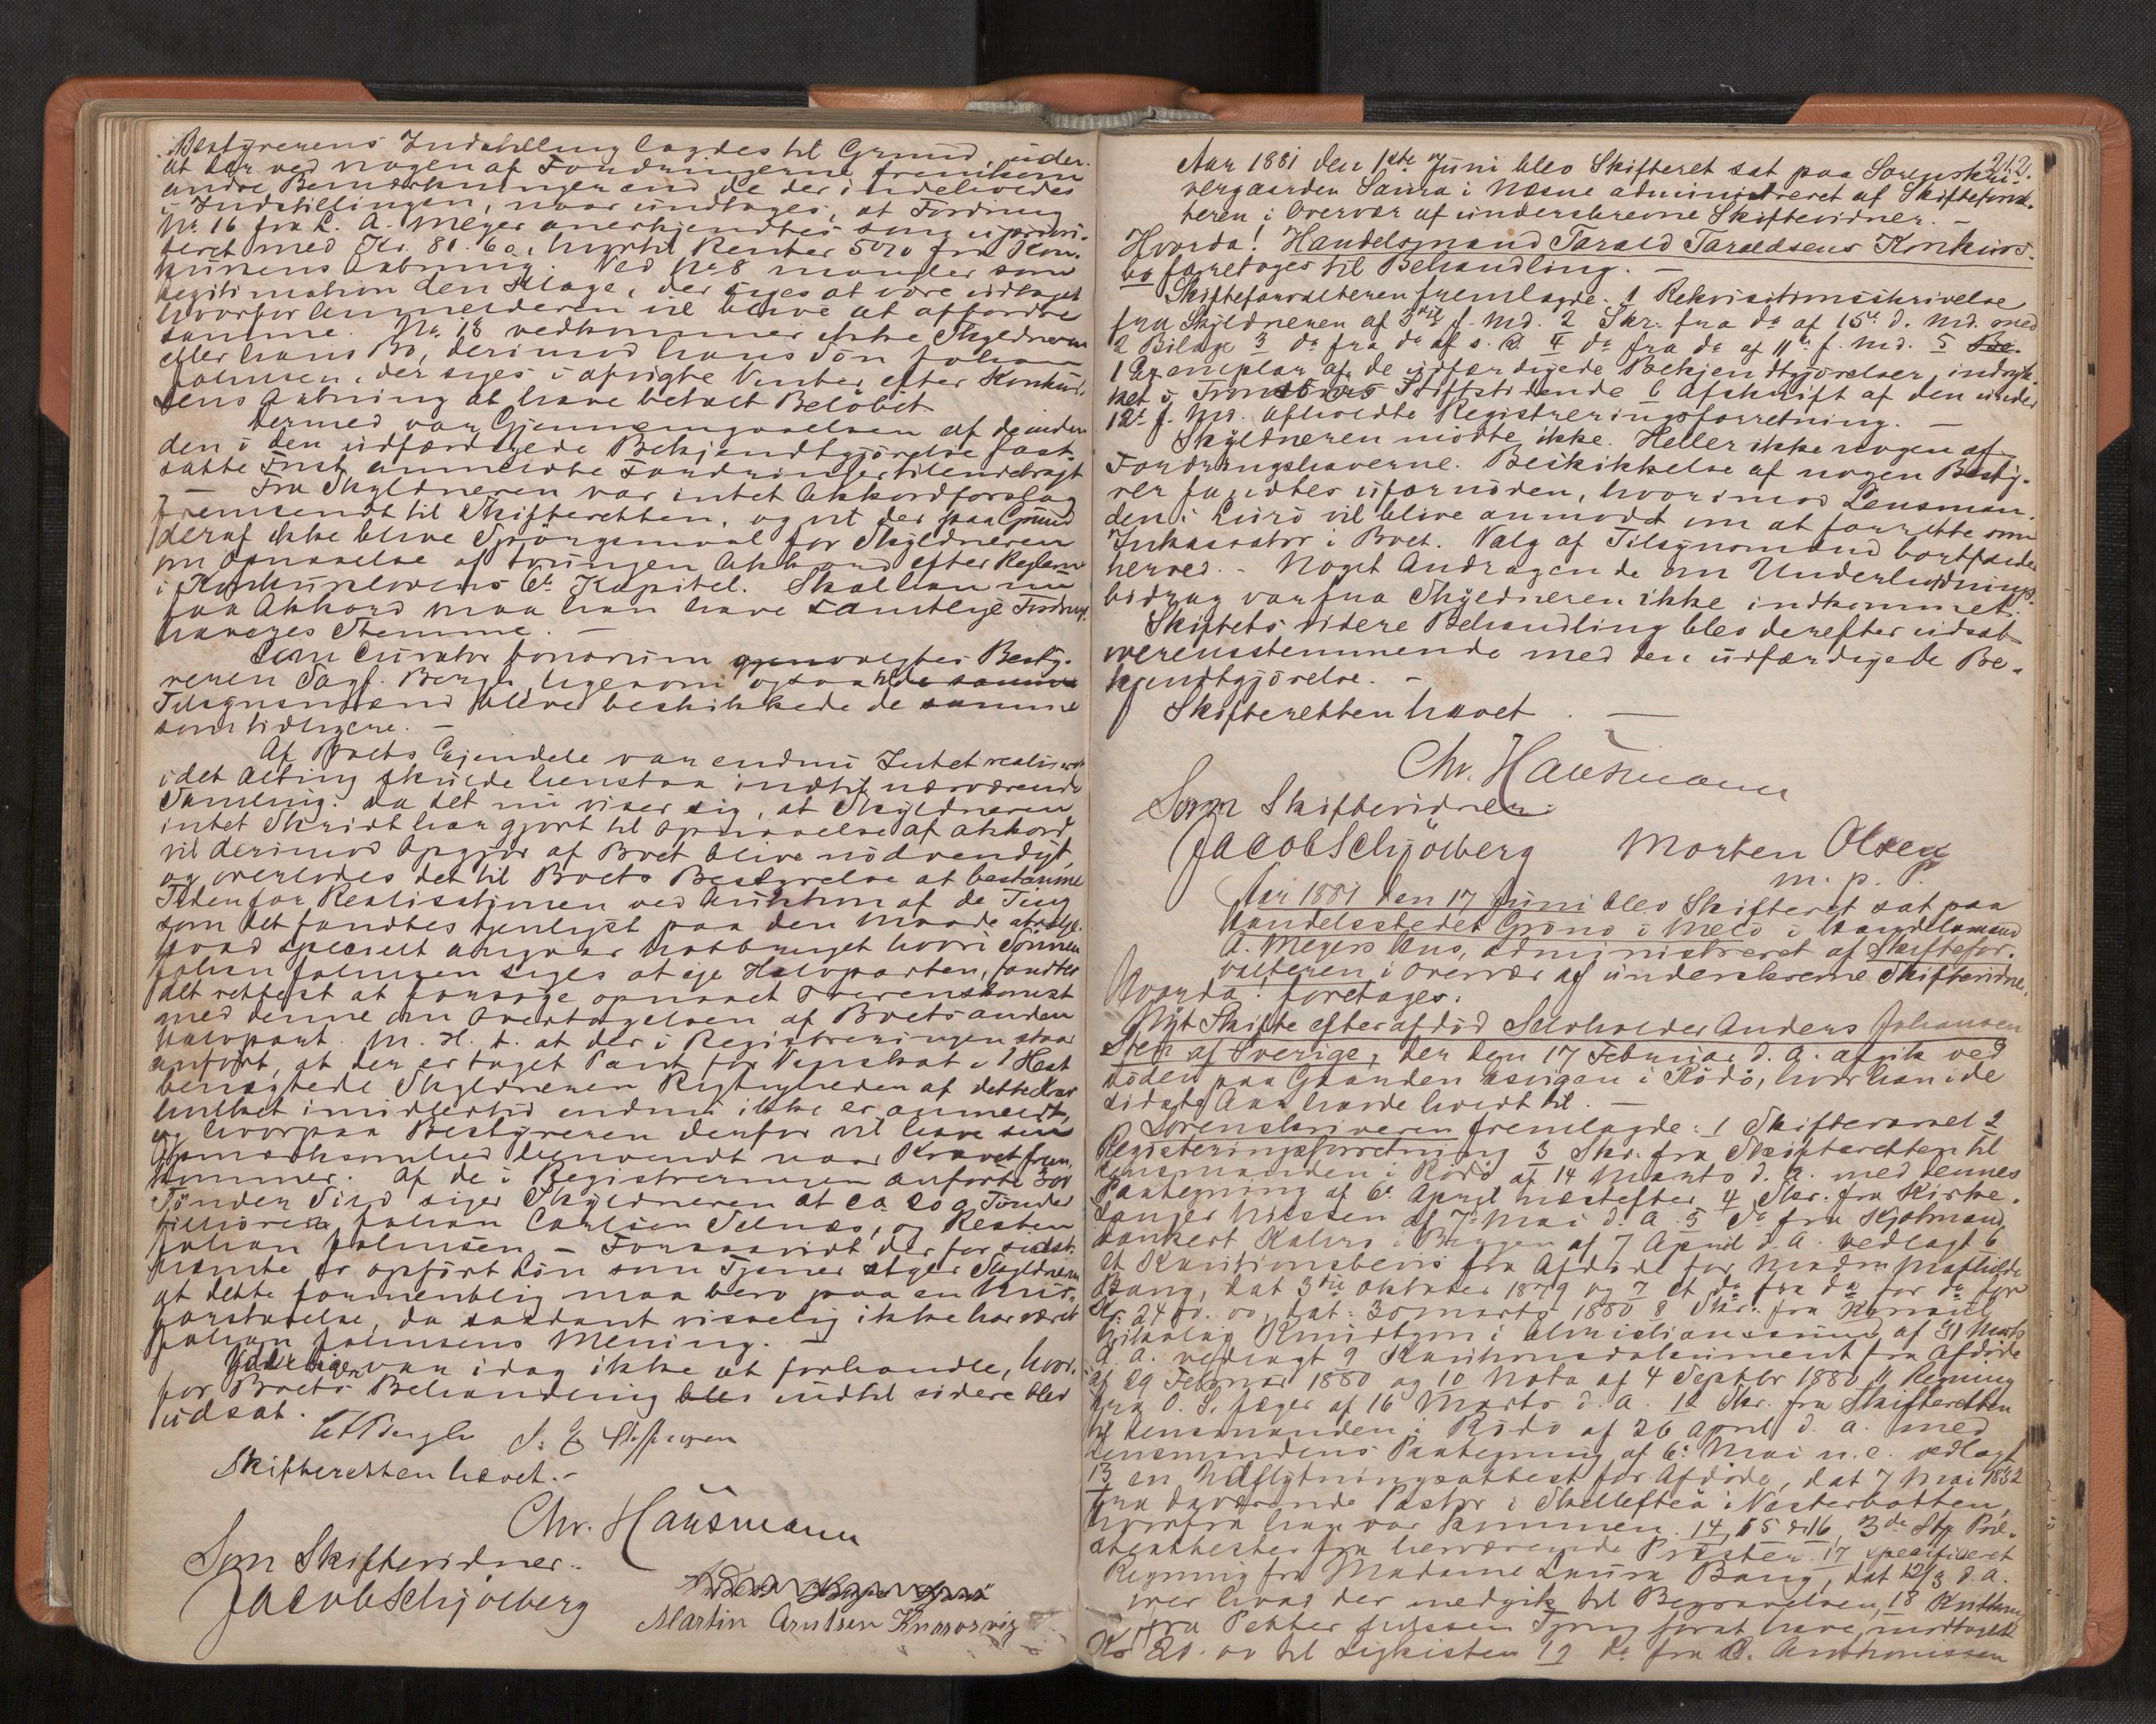 Bestyrerens Indstilling lagdes til Grund, uden
at der ved nogen af Fordringerne fremkom
andre Bemærkninger end de der indeholdes
i Indstillingen, naar undtages, at Fordring
No 16 fra L. A. Meyer anerkjendtes som upriori-
teret med Kr. 81.60, hvortil Renter 5% fra Kon-
kursens Aabning. Ved No 8 mangler som
Legitimation den Klage, der siges at være udtaget
hvorfor Anmelderen vil blive at affordre
samme. No 18 vedkommer ikke Skyldneren
eller hans Bo, derimod hans Søn Johan
Johnsen, der siges i afvigte Vinter efter Konkur-
sens Aabning at have betalt Beløbet
Dermed var Gjennemgaaelsen af de inden
den i den udfærdigede Bekjendtgjørelse fast-
satte Frist anmeldte Fordringer tilendebragt
Fra Skyldneren var intet Akkordforslag
fremsendt til Skifteretten, og vil der paa Grund
deraf ikke blive Spørgsmaal for Skyldneren
om Opnaaelse af tvungen Akkord efter Reglerne
i Konkurslovens 6te Kapitel. Skal han nu
faa Akkord maa han have samtlige Fordrings-
haveres Stemme. —
Som Curator bonorum gjenvalgtes Besty-
reren Sagf. Bergh, ligesom ogsaa til
Tilsynsmænd bleve beskikkede de samme
som tidligere. —
Af Boets Ejendele var endnu Intet realiseret
idet Alting skulde henstaa indtil nærværende
Samling. Da det nu viser sig, at Skyldneren
intet Skridt har gjort til Opnaaelse af Akkord,
vil derimod Opgjør af Boet blive nødvendigt,
og overlodes det til Boets Bestyrelse at bestemme
Tiden for Realisationen ved Auktion af de Ting
som det fandtes tjenligst paa den Maade at sælge.
Hvad specielt angaar Notbruget hvori Sønnen
Johan Johnsen siges at eje Halvparten, fandtes
det rettest at forsøge opnaaet Overenskomst
med denne om Overtagelsen af Boets anden
Halvpart. M. H. t. at der i Registreringen staar
anført, at der er taget Pant for Veiskat i 1 Hest
benægtede Skyldneren Rigtigheden af dette Krav
hvilket imidlertid endnu ikke er anmeldt,
og hvorpaa Bestyreren derfor vil have sin
Opmærksomhed henvendt naar Kravet frem-
kommer. Af de i Registreringen anførte 300
Tønder Sild siger Skyldneren at ca. 200 Tønder
tilhøren Johan Carlsen Selnæs, og Resten
Johan Johnsen. — Forsaavidt der for sidst-
nævnte er opført Løn som Tjener siger Skyldneren
at dette formentlig maa bero paa en Mis-
forstaaelse, da saadant visselig ikke har været
Johan Johnsens Mening. —
Yderligere var idag ikke at forhandle, hvor-
for Boets Behandling indtil videre blev
udsat.
Skifteretten hævet. —
Chr. Hausmann
Som Skiftevidner:
Jacob Schjølberg
Martin Arntsen Knarsvig
212.
Aar 1881 den 1ste Juni blev Skifteret sat paa Sorenskri-
vergaarden Sanna i Næsne administreret af Skifteforval-
teren i Overvær af underskrevne Skiftevidner. —
Hvorda! Handelsmand Tarald Taraldsens Konkurs-
bo foretages til Behandling. —
Skifteforvalteren fremlagde. 1 Rekvisitionsskrivelse
fra Skyldneren af 3die f. Md. 2 Skr. fra do af 15de d. Md. med
2 Bilage 3 do fra do af s. D. 4 do fra do af 11te f. Md. 5
1 Exemplar af de udfærdigede Bekjendtgjørelser, indryk-
ket i Tromsø Stiftstidende 6 Afskrift af den under
12te f. Md. afholdte Registreringsforretning. —
Skyldneren mødte ikke. Heller ikke nogen af
Fordringshaverne. Beskikkelse af nogen Besty-
rer fandtes ufornøden, hvorimod Lensman-
den i Lurø vil blive anmodet om at forrette som
Inkassator i Boet. Valg af Tilsynsmænd bortfalder
herved. — Noget Andragende om Underholdnings-
bidrag var fra Skyldneren ikke indkommet.
Skiftets videre Behandling blev derefter udsat
overensstemmende med den udfærdigede Be-
kjendtgjørelse. —
Skifteretten hævet. —
Chr. Hausmann
Som Skiftevidner:
Jacob Schjølberg Morten Olsen
m. p. P.
Aar 1881 den 17 Juni blev Skifteret sat paa
Handelsstedet Grønø i Melø i Handelsmand
A. Meyers Hus, administreret af Skiftefor-
valteren i Overvær af underskrevne Skiftevidner.
Hvorda! foretages:
Nyt Skifte efter afdød Selvholder Anders Johansen
af Sverige, der den 17 Februar d. A. afgik ved
Døden paa Gaarden Esvigen i Rødø, hvor han i de
sidste Aar havde holdt til. —
Sorenskriveren fremlagde: 1 Skifteramel 2
Registreringsforretning 3 Skr. fra Skifteretten til
Lensmanden i Rødø af 14 Marts d. A. med dennes
Paategning af 6te April næstefter 4 Skr. fra Kirke-
sanger Nilssen af 7de Mai d. A. 5 do fra
af 7 April d. A. vedlagt 6
et Kautionsbevis fra Afdøde for Madm Mathilde
Bang, dat 3die Oktober 1879 og 7 et do fra do for do for
Kr. 2400.00, dat: 30 Marts 1880 8 Skr. fra Konsul
Nikolay Knudtzon i Christianssund af 31 Marts
d. A. vedlagt 9 Kautionsdokument fra Afdøde
af 29 Februar 1880 og 10 Nota af 4 Septbr 1880 11 Regning
fra O. S. Jæger af 16 Marts d. A. 12 Skr. fra Skifteretten
til Lensmanden i Rødø af 26 April d. A. med
Lensmandens Paategning af 6te Mai n. e. vedlagt
13 en Udflytningsattest for Afdøde, dat 7 Mai 1832
fra daværende Pastor i Skellefteå i Vesterbotten,
hvorfra han var kommen. 14, 15 og 16, 3de Stk. Præ-
steattester fra herværende Præster. 17 specificeret
Regning fra Madame Laura Bang, dat 12/3 d. A.
over hvad der medgik til Begravelsen, 18 Kvittering
fra Petter Julssen for at have modtaget
Kr 20.00 til Ligkisten 19 do fra B. Anthonissen